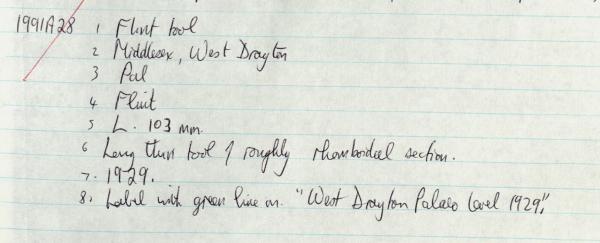 1991A28 1 Flint tool
2 Middlesex, West Drayton
3 Pal
4 Flint
5 L. 103 mm.
6 Long thin tool of roughly rhomboidal section.
7. 1929.
8. Label with green line on. "West Drayton Palaeo Level 1929".